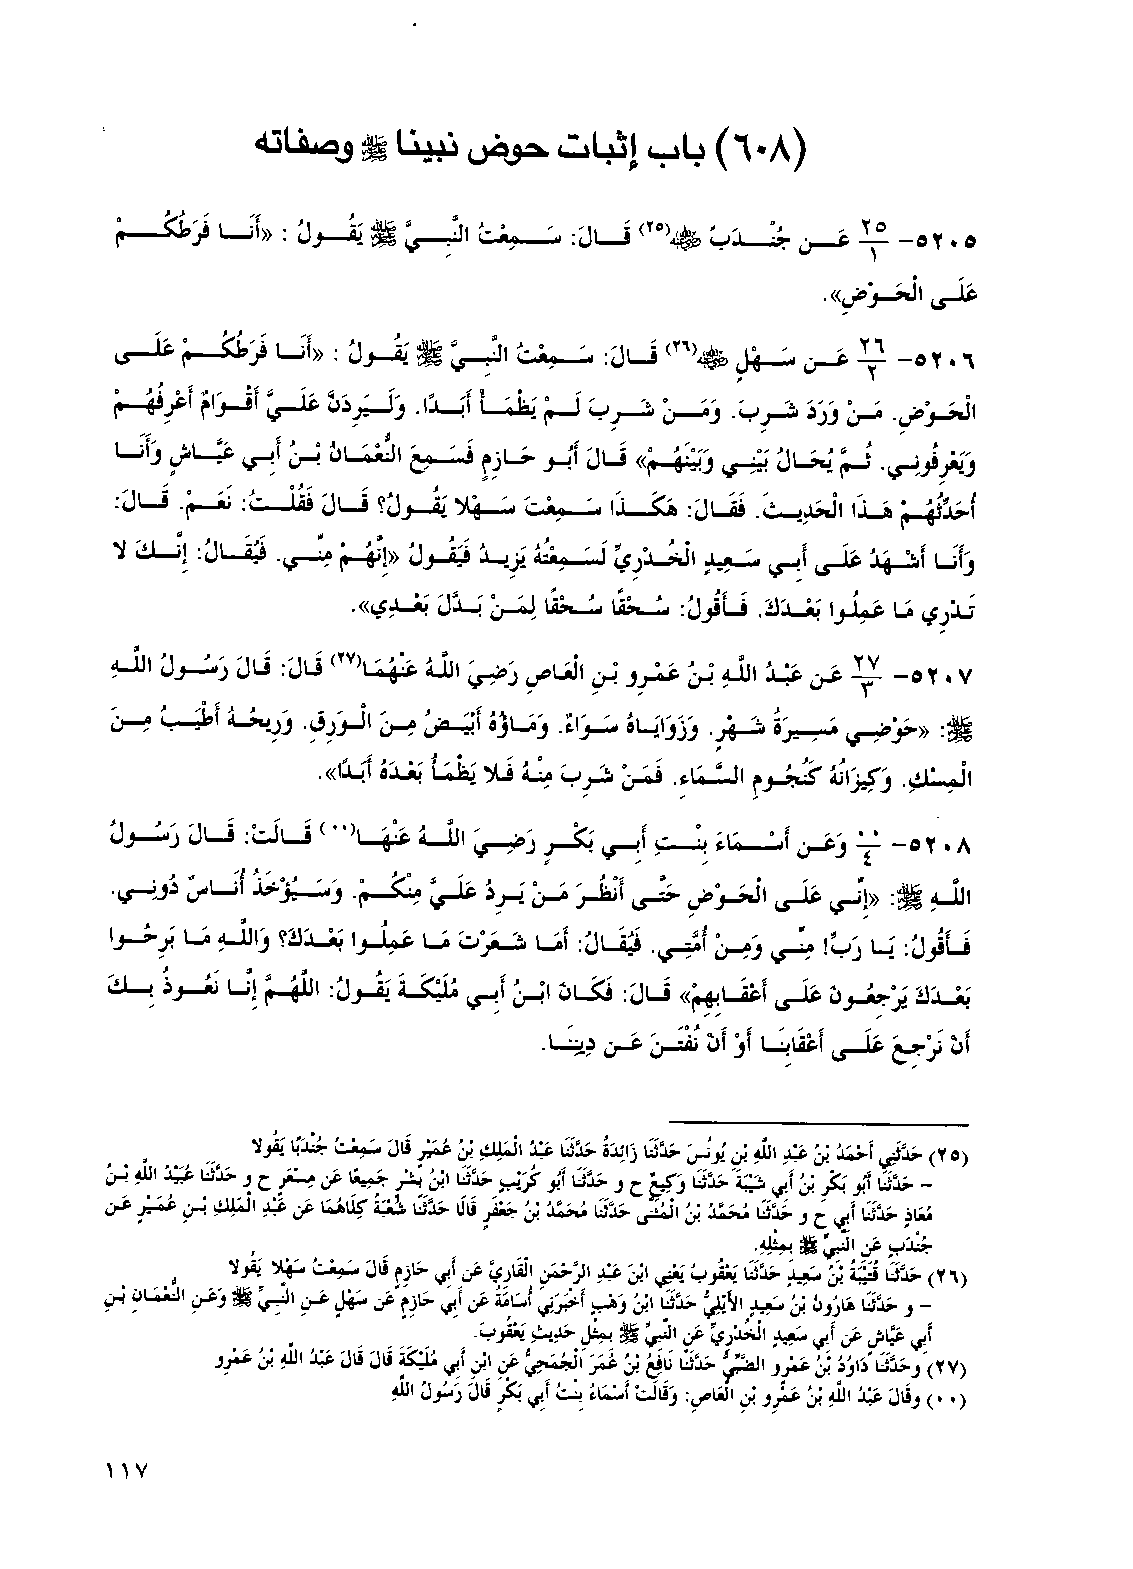 (٦٠٨) باب إثبات حوض نبينا ﷺ وصفاته
٥٢٠٥- ٢٥/١ عَن جُنْدَبٍ ﷺ(٢٥) قَالَ: سَمِعْتُ النَّبِيَّ ﷺ يَقُولُ : «أَنَا فَرَطُكُمْ
عَلَى الْحَوْضِ».
٥٢٠٦- ٢٦/٢ عَن سَهْلٍ ﷺ(٢٦) قَالَ: سَمِعْتُ النَّبِيَّ ﷺ يَقُولُ : «أَنَا فَرَطُكُمْ عَلَى
الْحَوْضِ. مَنْ وَرَدَ شَرِبَ. وَمَنْ شَرِبَ لَمْ يَظْمَأْ أَبَدًا. وَلَيَرِدَنَّ عَلَيَّ أَقْوَامٌ أَعْرِفُهُمْ
وَيَعْرِفُونِي. ثُمَّ يُحَالُ بَيْنِي وَبَيْنَهُمْ» قَالَ أَبُو حَازِمٍ فَسَمِعَ النُّعْمَانُ بْنُ أَبِي عَيَّاشٍ وَأَنَا
أُحَدِّثُهُمْ هَذَا الْحَدِيثَ. فَقَالَ: هَكَذَا سَمِعْتَ سَهْلًا يَقُولُ؟ قَالَ فَقُلْتُ: نَعَمْ. قَالَ:
وَأَنَا أَشْهَدُ عَلَى أَبِي سَعِيدٍ الْخُدْرِيِّ لَسَمِعْتُهُ يَزِيدُ فَيَقُولُ «إِنَّهُمْ مِنِّي. فَيُقَالُ: إِنَّكَ لَا
تَدْرِي مَا عَمِلُوا بَعْدَكَ. فَأَقُولُ: سُحْقًا سُحْقًا لِمَنْ بَدَّلَ بَعْدِي».
٥٢٠٧- ٢٧/٣ عَن عَبْدُ اللَّهِ بْنُ عَمْرِو بْنِ الْعَاصِ رَضِيَ اللَّهُ عَنْهُمَا(٢٧) قَالَ: قَالَ رَسُولُ اللَّهِ
ﷺ: «حَوْضِي مَسِيرَةُ شَهْرٍ. وَزَوَايَاهُ سَوَاءٌ. وَمَاؤُهُ أَبْيَضُ مِنَ الْوَرِقِ. وَرِيحُهُ أَطْيَبُ مِنَ
الْمِسْكِ. وَكِيزَانُهُ كَنُجُومِ السَّمَاءِ. فَمَنْ شَرِبَ مِنْهُ فَلَا يَظْمَأُ بَعْدَهُ أَبَدًا».
٥٢٠٨- ٠٠/٤ وَعَن أَسْمَاءَ بِنْتِ أَبِي بَكْرٍ رَضِيَ اللَّهُ عَنْهَا(٠٠) قَالَتْ: قَالَ رَسُولُ
اللَّهِ ﷺ: «إِنِّي عَلَى الْحَوْضِ حَتَّى أَنْظُرَ مَنْ يَرِدُ عَلَيَّ مِنْكُمْ. وَسَيُؤْخَذُ أُنَاسٌ دُونِي.
فَأَقُولُ: يَا رَبِّ! مِنِّي وَمِنْ أُمَّتِي. فَيُقَالُ: أَمَا شَعَرْتَ مَا عَمِلُوا بَعْدَكَ؟ وَاللَّهِ مَا بَرِحُوا
بَعْدَكَ يَرْجِعُونَ عَلَى أَعْقَابِهِمْ» قَالَ: فَكَانَ ابْنُ أَبِي مُلَيْكَةَ يَقُولُ: اللَّهُمَّ إِنَّا نَعُوذُ بِكَ
أَنْ نَرْجِعَ عَلَى أَعْقَابِنَا أَوْ أَنْ نُفْتَنَ عَن دِينِنَا.
(٢٥) حَدَّثَنِي أَحْمَدُ بْنُ عَبْدِ اللَّهِ بْنِ يُونُسَ حَدَّثَنَا زَائِدَةُ حَدَّثَنَا عَبْدُ الْمَلِكِ بْنُ عُمَيْرٍ قَالَ سَمِعْتُ جُنْدَبًا يَقُولا
– حَدَّثَنَا أَبُو بَكْرِ بْنُ أَبِي شَيْبَةَ حَدَّثَنَا وَكِيعٌ ح و حَدَّثَنَا أَبُو كُرَيْبٍ حَدَّثَنَا ابْنُ بِشْرٍ جَمِيعًا عَن مِسْعَرٍ ح و حَدَّثَنَا عُبَيْدُ اللَّهِ بْنُ
مُعَاذٍ حَدَّثَنَا أَبِي ح و حَدَّثَنَا مُحَمَّدُ بْنُ الْمُثَنَّى حَدَّثَنَا مُحَمَّدُ بْنُ جَعْفَرٍ قَالَا حَدَّثَنَا شُعْبَةُ كِلَاهُمَا عَن عَبْدِ الْمَلِكِ بْنِ عُمَيْرٍ عَن
جُنْدَبٍ عَنِ النَّبِيِّ ﷺ بِمِثْلِهِ.
(٢٦) حَدَّثَنَا قُتَيْبَةُ بْنُ سَعِيدٍ حَدَّثَنَا يَعْقُوبُ يَعْنِي ابْنَ عَبْدِ الرَّحْمَنِ الْقَارِيَّ عَن أَبِي حَازِمٍ قَالَ سَمِعْتُ سَهْلًا يَقُولا
– و حَدَّثَنَا هَارُونُ بْنُ سَعِيدٍ الْأَيْلِيُّ حَدَّثَنَا ابْنُ وَهْبٍ أَخْبَرَنِي أُسَامَةُ عَن أَبِي حَازِمٍ عَن سَهْلٍ عَنِ النَّبِيِّ ﷺ وَعَنِ النُّعْمَانِ بْنِ
أَبِي عَيَّاشٍ عَن أَبِي سَعِيدٍ الْخُدْرِيِّ عَنِ النَّبِيِّ ﷺ بِمِثْلِ حَدِيثِ يَعْقُوبَ.
(٢٧) وحَدَّثَنَا دَاوُدُ بْنُ عَمْرٍو الضَّبِّيُّ حَدَّثَنَا نَافِعُ بْنُ عُمَرَ الْجُمَحِيُّ عَنِ ابْنِ أَبِي مُلَيْكَةَ قَالَ قَالَ عَبْدُ اللَّهِ بْنُ عَمْرِو
(٠٠) وقَالَ عَبْدُ اللَّهِ بْنُ عَمْرِو بْنِ الْعَاصِ: وَقَالَتْ أَسْمَاءُ بِنْتُ أَبِي بَكْرٍ قَالَ رَسُولُ اللَّهِ
١١٧